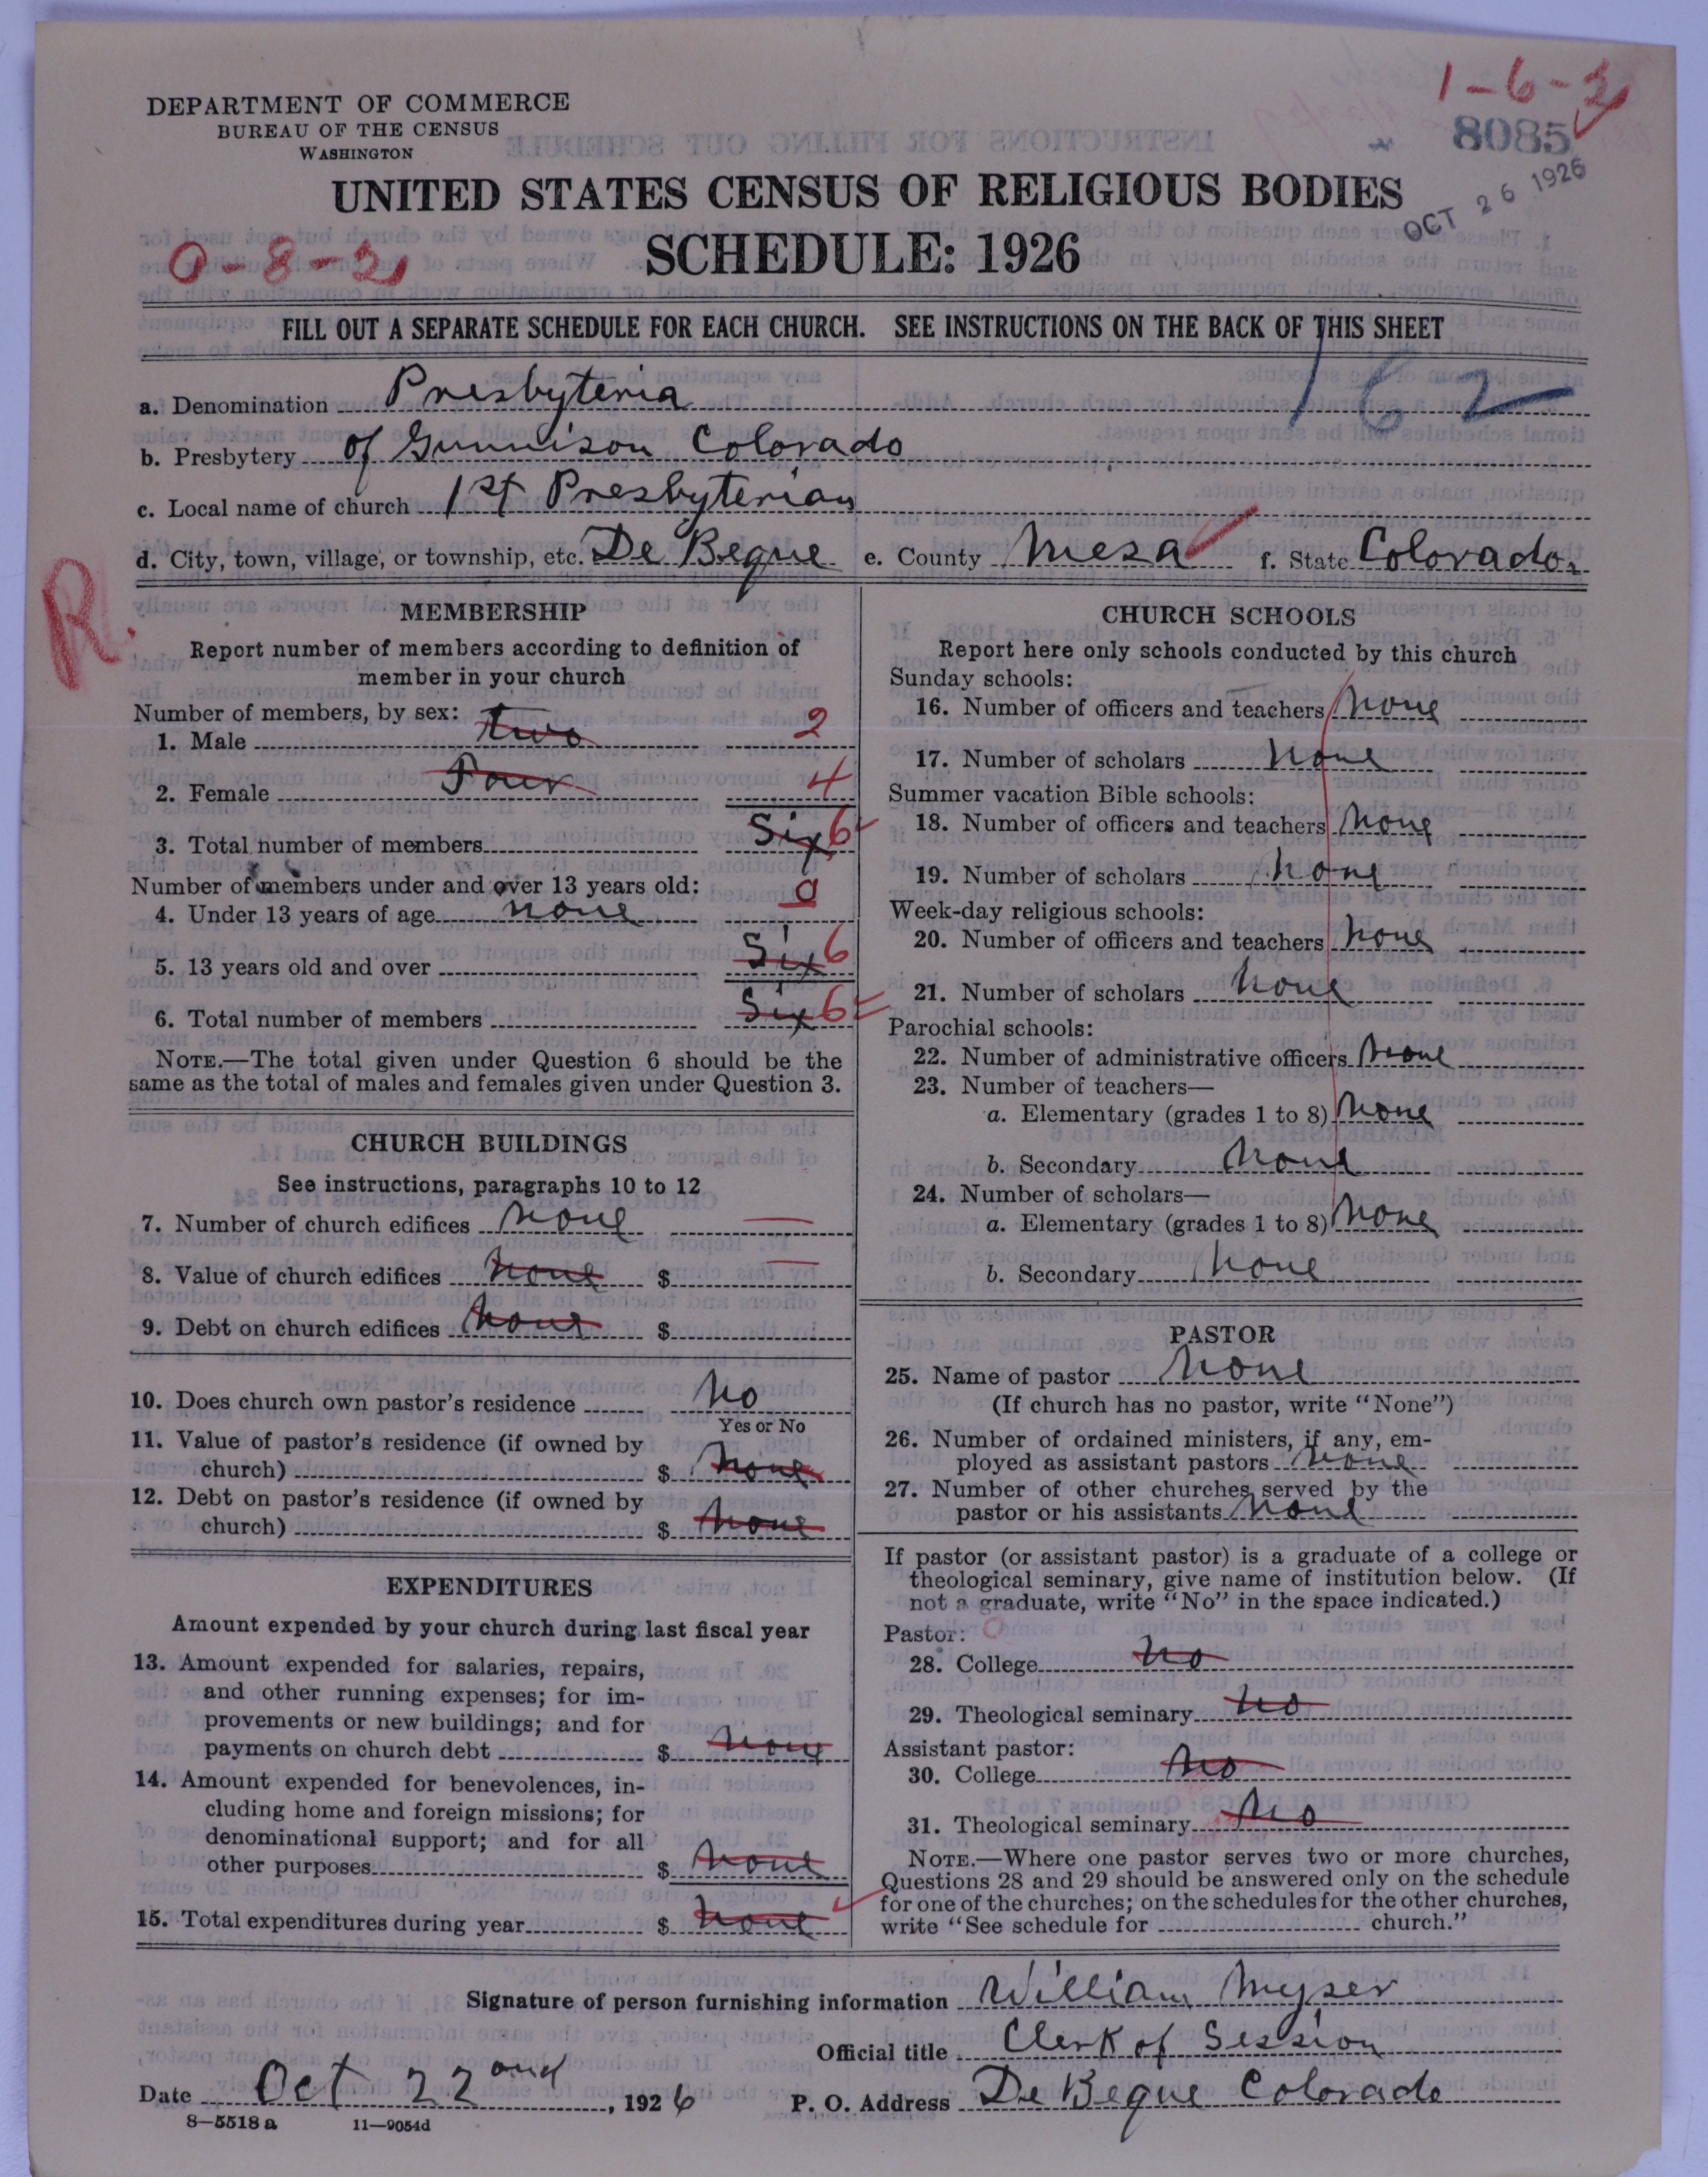 1-6-2
DEPARTMENT OF COMMERCE
BUREAU OF THE CENSUS
WASHINGTON
8085
OCT 26 1926
UNITED STATES CENSUS OF RELIGIOUS BODIES
SCHEDULE: 1926
0-8-2
FILL OUT A SEPARATE SCHEDULE FOR EACH CHURCH. SEE INSTRUCTIONS ON THE BACK OF THIS SHEET
162
a. Denomination Presbyteria
b. Presbytery of Gunnison Colorado
c. Local name of church 1st Presbyterian
d. City, town, village, or township, etc. De Beque e. County Mesa f. State Colorado.
R.
MEMBERSHIP
Report number of members according to definition of
member in your church
Number of members, by sex:
1. Male two 2
2. Female Four 4
3. Total number of members Six 6
Number of members under and over 13 years old:
4. Under 13 years of age none 0
5. 13 years old and over Six 6
6. Total number of members Six 6
NOTE.—The total given under Question 6 should be the
same as the total of males and females given under Question 3.
CHURCH BUILDINGS
See instructions, paragraphs 10 to 12
7. Number of church edifices none
8. Value of church edifices none $
9. Debt on church edifices none $
10. Does church own pastor's residence No
Yes or No
11. Value of pastor's residence (if owned by
church) $ none
12. Debt on pastor's residence (if owned by
church) $ none
EXPENDITURES
Amount expended by your church during last fiscal year
13. Amount expended for salaries, repairs,
and other running expenses; for im-
provements or new buildings; and for
payments on church debt $ none
14. Amount expended for benevolences, in-
cluding home and foreign missions; for
denominational support; and for all
other purposes $ none
15. Total expenditures during year $ none
CHURCH SCHOOLS
Report here only schools conducted by this church
Sunday schools:
16. Number of officers and teachers none
17. Number of scholars none
Summer vacation Bible schools:
18. Number of officers and teachers none
19. Number of scholars none
Week-day religious schools:
20. Number of officers and teachers none
21. Number of scholars none
Parochial schools:
22. Number of administrative officers none
23. Number of teachers—
a. Elementary (grades 1 to 8) none
b. Secondary none
24. Number of scholars—
a. Elementary (grades 1 to 8) none
b. Secondary none
PASTOR
25. Name of pastor None
(If church has no pastor, write "None")
26. Number of ordained ministers, if any, em-
ployed as assistant pastors none
27. Number of other churches served by the
pastor or his assistants none
If pastor (or assistant pastor) is a graduate of a college or
theological seminary, give name of institution below. (If
not a graduate, write "No" in the space indicated.)
Pastor: 0
28. College No
29. Theological seminary No
Assistant pastor:
30. College No
31. Theological seminary No
NOTE.—Where one pastor serves two or more churches,
Questions 28 and 29 should be answered only on the schedule
for one of the churches; on the schedules for the other churches,
write "See schedule for church."
Signature of person furnishing information William Myser
Official title Clerk of Session
Date Oct 22ond, 1926 P. O. Address De Beque Colorado
8—5518 a 11—9054d